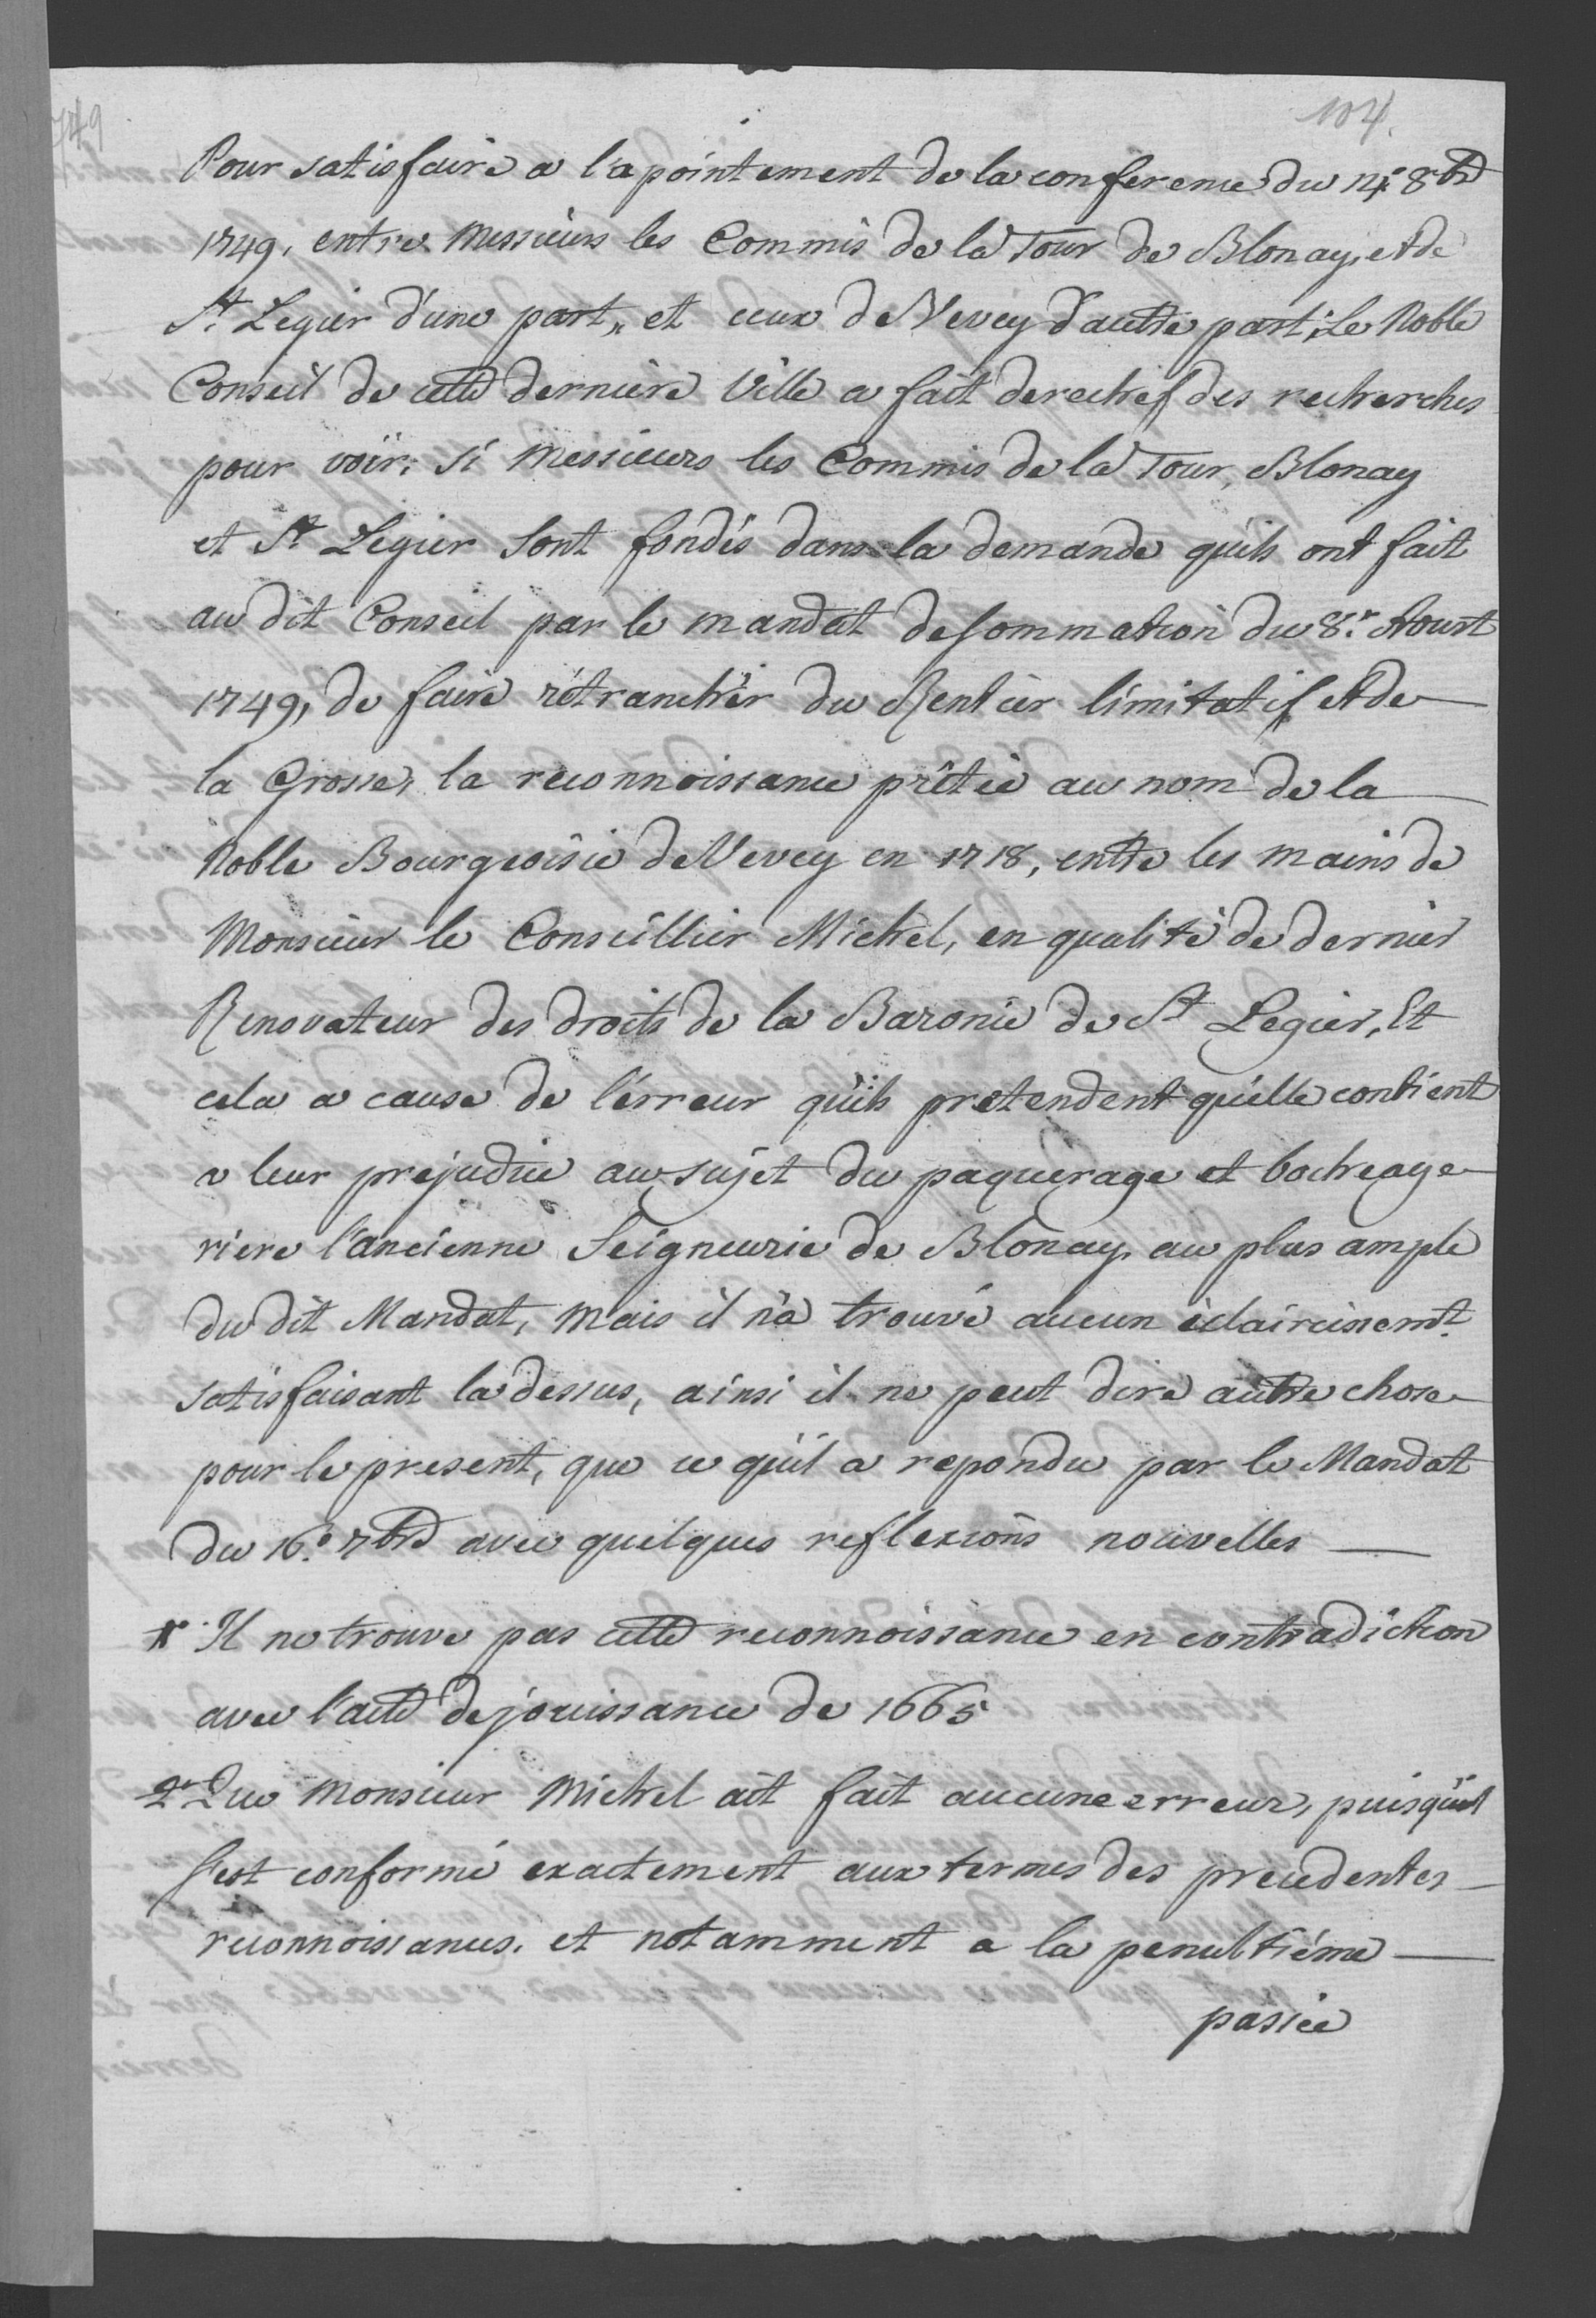 104.
Pour satisfaire a l'apointement de la conference du 14.e 8bre
1749, entre Messieurs les Commis de la Tour de Blonay, et de
St. Legier d'une part, et ceux de Vevey d'autre part; Le Noble
Conseil de cette derniere Ville a fait derechef des recherches
pour voir, si Messieurs les Commis de la Tour, Blonay
et St. Legier sont fondés dans la demande qu'ils ont fait
au dit Conseil par le mandat de sommation du 8.e Aoust
1749, de faire rétrancher du Rentier limitatif et de
la Grosse, la reconnoissance prêtée au nom de la
Noble Bourgeoisie de Vevey en 1718, entre les mains de
Monsieur le Conseillier Michel, en qualité de dernier
Renovateur des droits de la Baronie de St. Legier, Et
cela a cause de l'érreur qu'ils pretendent qu'elle contient
a leur prejudice au sujet du paquerage et bocheage
riere l'ancienne Seigneurie de Blonay, au plus ample
du dit Mandat, Mais il n'a trouvé aucun éclaircissemt.
satisfaisant la dessus, ainsi il ne peut dire autre chose
pour le present, que ce qu'il a repondu par le Mandat
du 16.e 7bre avec quelques reflexions nouvelles
Il ne trouve pas cette reconnoissance en contradiction
avec l'acte de jouissance de 1665
2.e Que Monsieur Michel ait fait aucune erreur, puisqu'il
s'est conformé exactement aux termes des precedentes
reconnoissances, et notamment a la penultiéme
passée